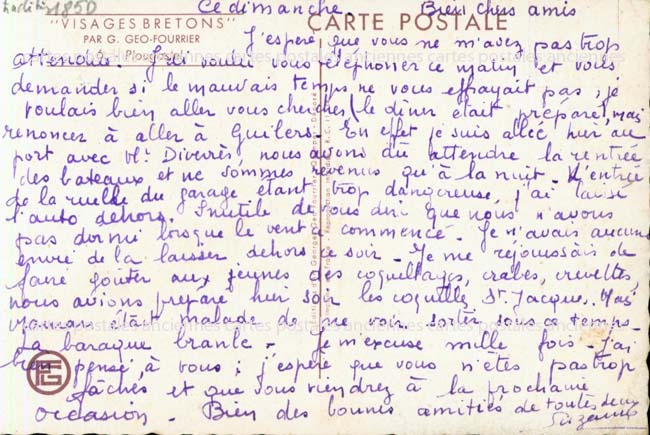 1850
Ce dimanche Bien chers amis
"VISAGES BRETONS" CARTE POSTALE
PAR G. GEO-FOURRIER
Plougastel
J'espère que vous ne m'avez pas trop
attendue. J'ai voulu vous téléphoner ce matin et vous
demander si le mauvais temps ne vous effrayait pas, je
voulais bien aller vous chercher (le dîner était préparé) mais
renoncer à aller à Guilers. En effet je suis allée hier au
port avec Mr. nous avons dû attendre la rentrée
des bateaux et ne sommes revenus qu'à la nuit. L'entrée
de la ruelle du garage étant trop dangereuse, j'ai laissé
l'auto dehors. Inutile de vous dire que nous n'avons
pas dormi lorsque le vent a commencé. Je n'avais aucune
envie de la laisser dehors ce soir. Je me réjouissais de
faire goûter aux jeunes des coquillages, crabes, crevettes,
nous avions préparé hier soir les coquilles St. Jacques. Mais
maman était malade de me voir sortir sous ce temps.
La baraque branle. Je m'excuse mille fois. J'ai
bien pensé à vous; j'espère que vous n'êtes pas trop
fâchés et que vous viendrez à la prochaine
occasion. Bien des bonnes amitiés de toutes deux
Suzanne
cartes postales anciennes cartes postales anciennes